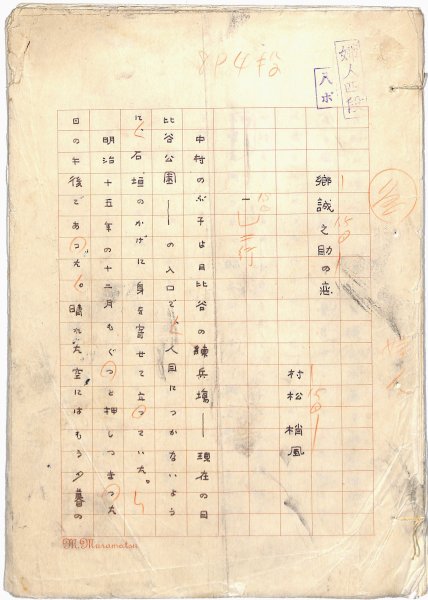 8P4段
婦人四段
八ポ
郷誠之助の恋
村松 梢風
一
中村のぶ子は日比谷の練兵場――現在の日
比谷公園――の入口で、人目につかないよう
に、石垣のかげに身を寄せて立っていた。
明治十五年の十二月もぐっと押しつまった
日の午後であった。晴れた空にはもう夕暮の
M. Muramatsu